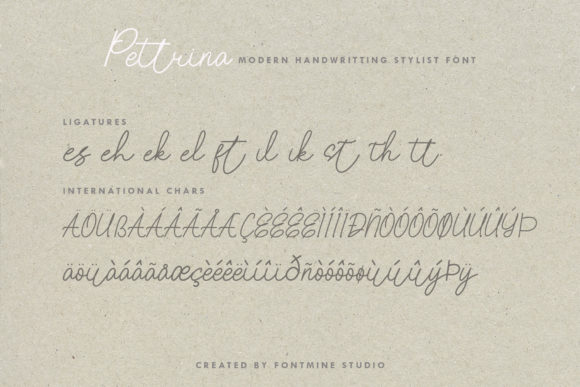 Pettrina MODERN HANDWRITTING STYLIST FONT
LIGATURES
es eh ek el ft il ik st th tt
INTERNATIONAL CHARS
ÄÖÜßÀÁÂÃÅÆÇÈÉÊËÌÍÎÏÐÑÒÓÔÕØÙÚÛÝÞ
äöüàáâãåæçèéêëìíîïðñòóôõøùúûýþÿ
CREATED BY FONTMINE STUDIO